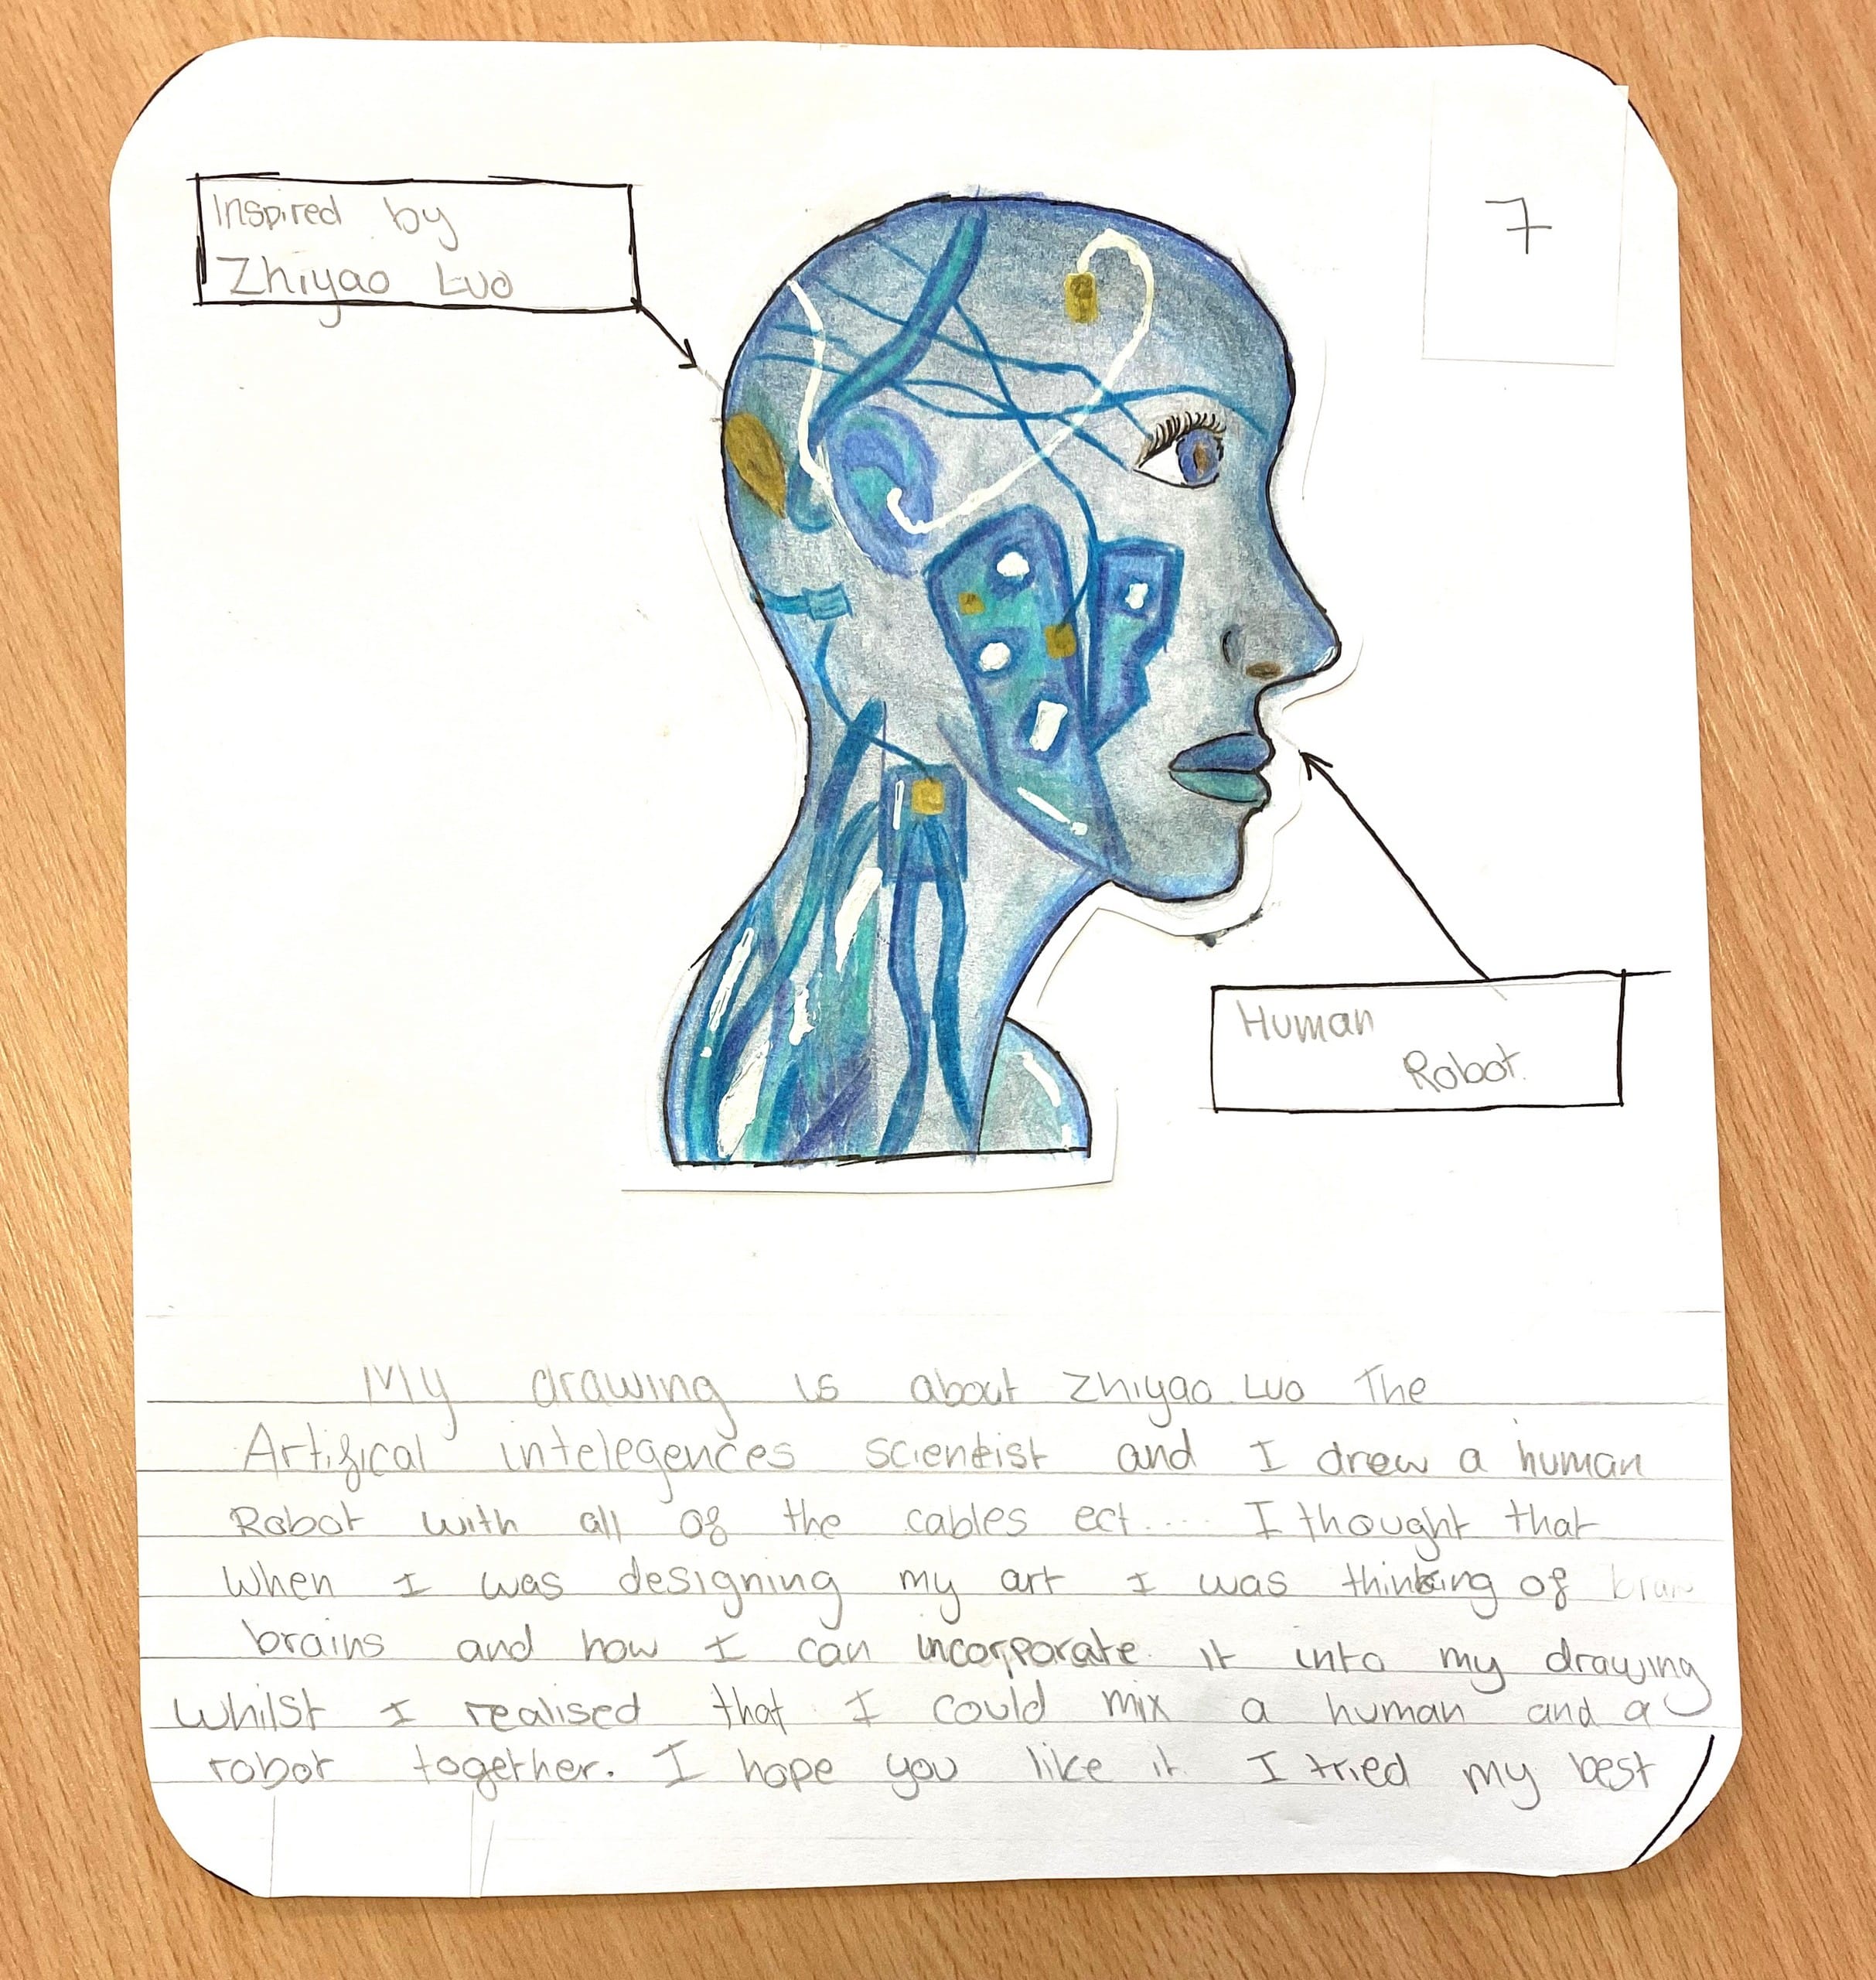 Inspired by
Zhiyao Luo
7
Human
Robot.
My drawing is about Zhiyao Luo The
Artifical intelegences scientist and I drew a human
Robot with all of the cables ect.... I thought that
when I was designing my art I was thinking of bran
brains and how I can incorporate it into my drawing
whilst I realised that I could mix a human and a
robot together. I hope you like it I tried my best